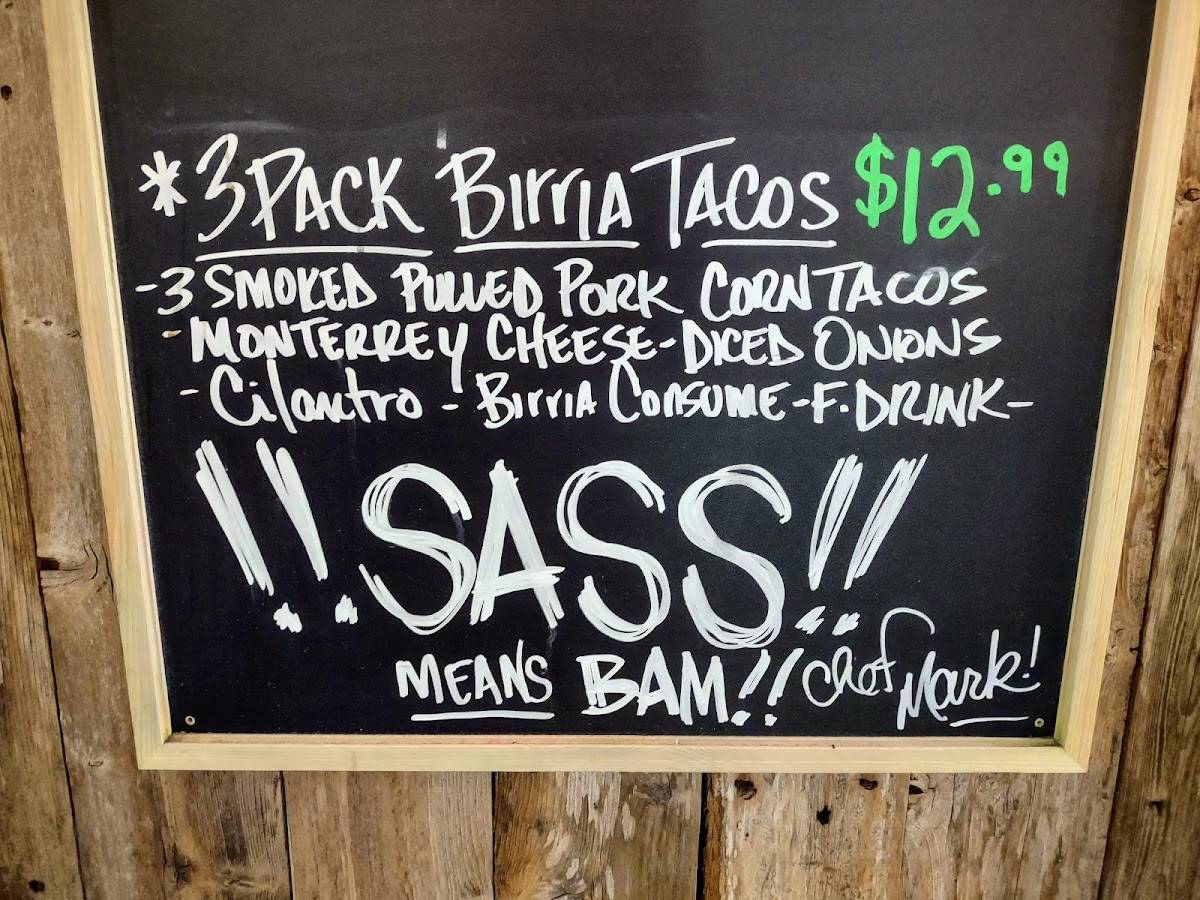 *3 PACK BIrrIA TACOS $12.99
-3 SMOKED PULLED PORK CORN TACOS
- MONTERREY CHEESE - DICED ONIONS
- Cilantro - BIrrIA CONSUME - F. DRINK -
!! SASS !!
MEANS BAM!! Chef Mark!